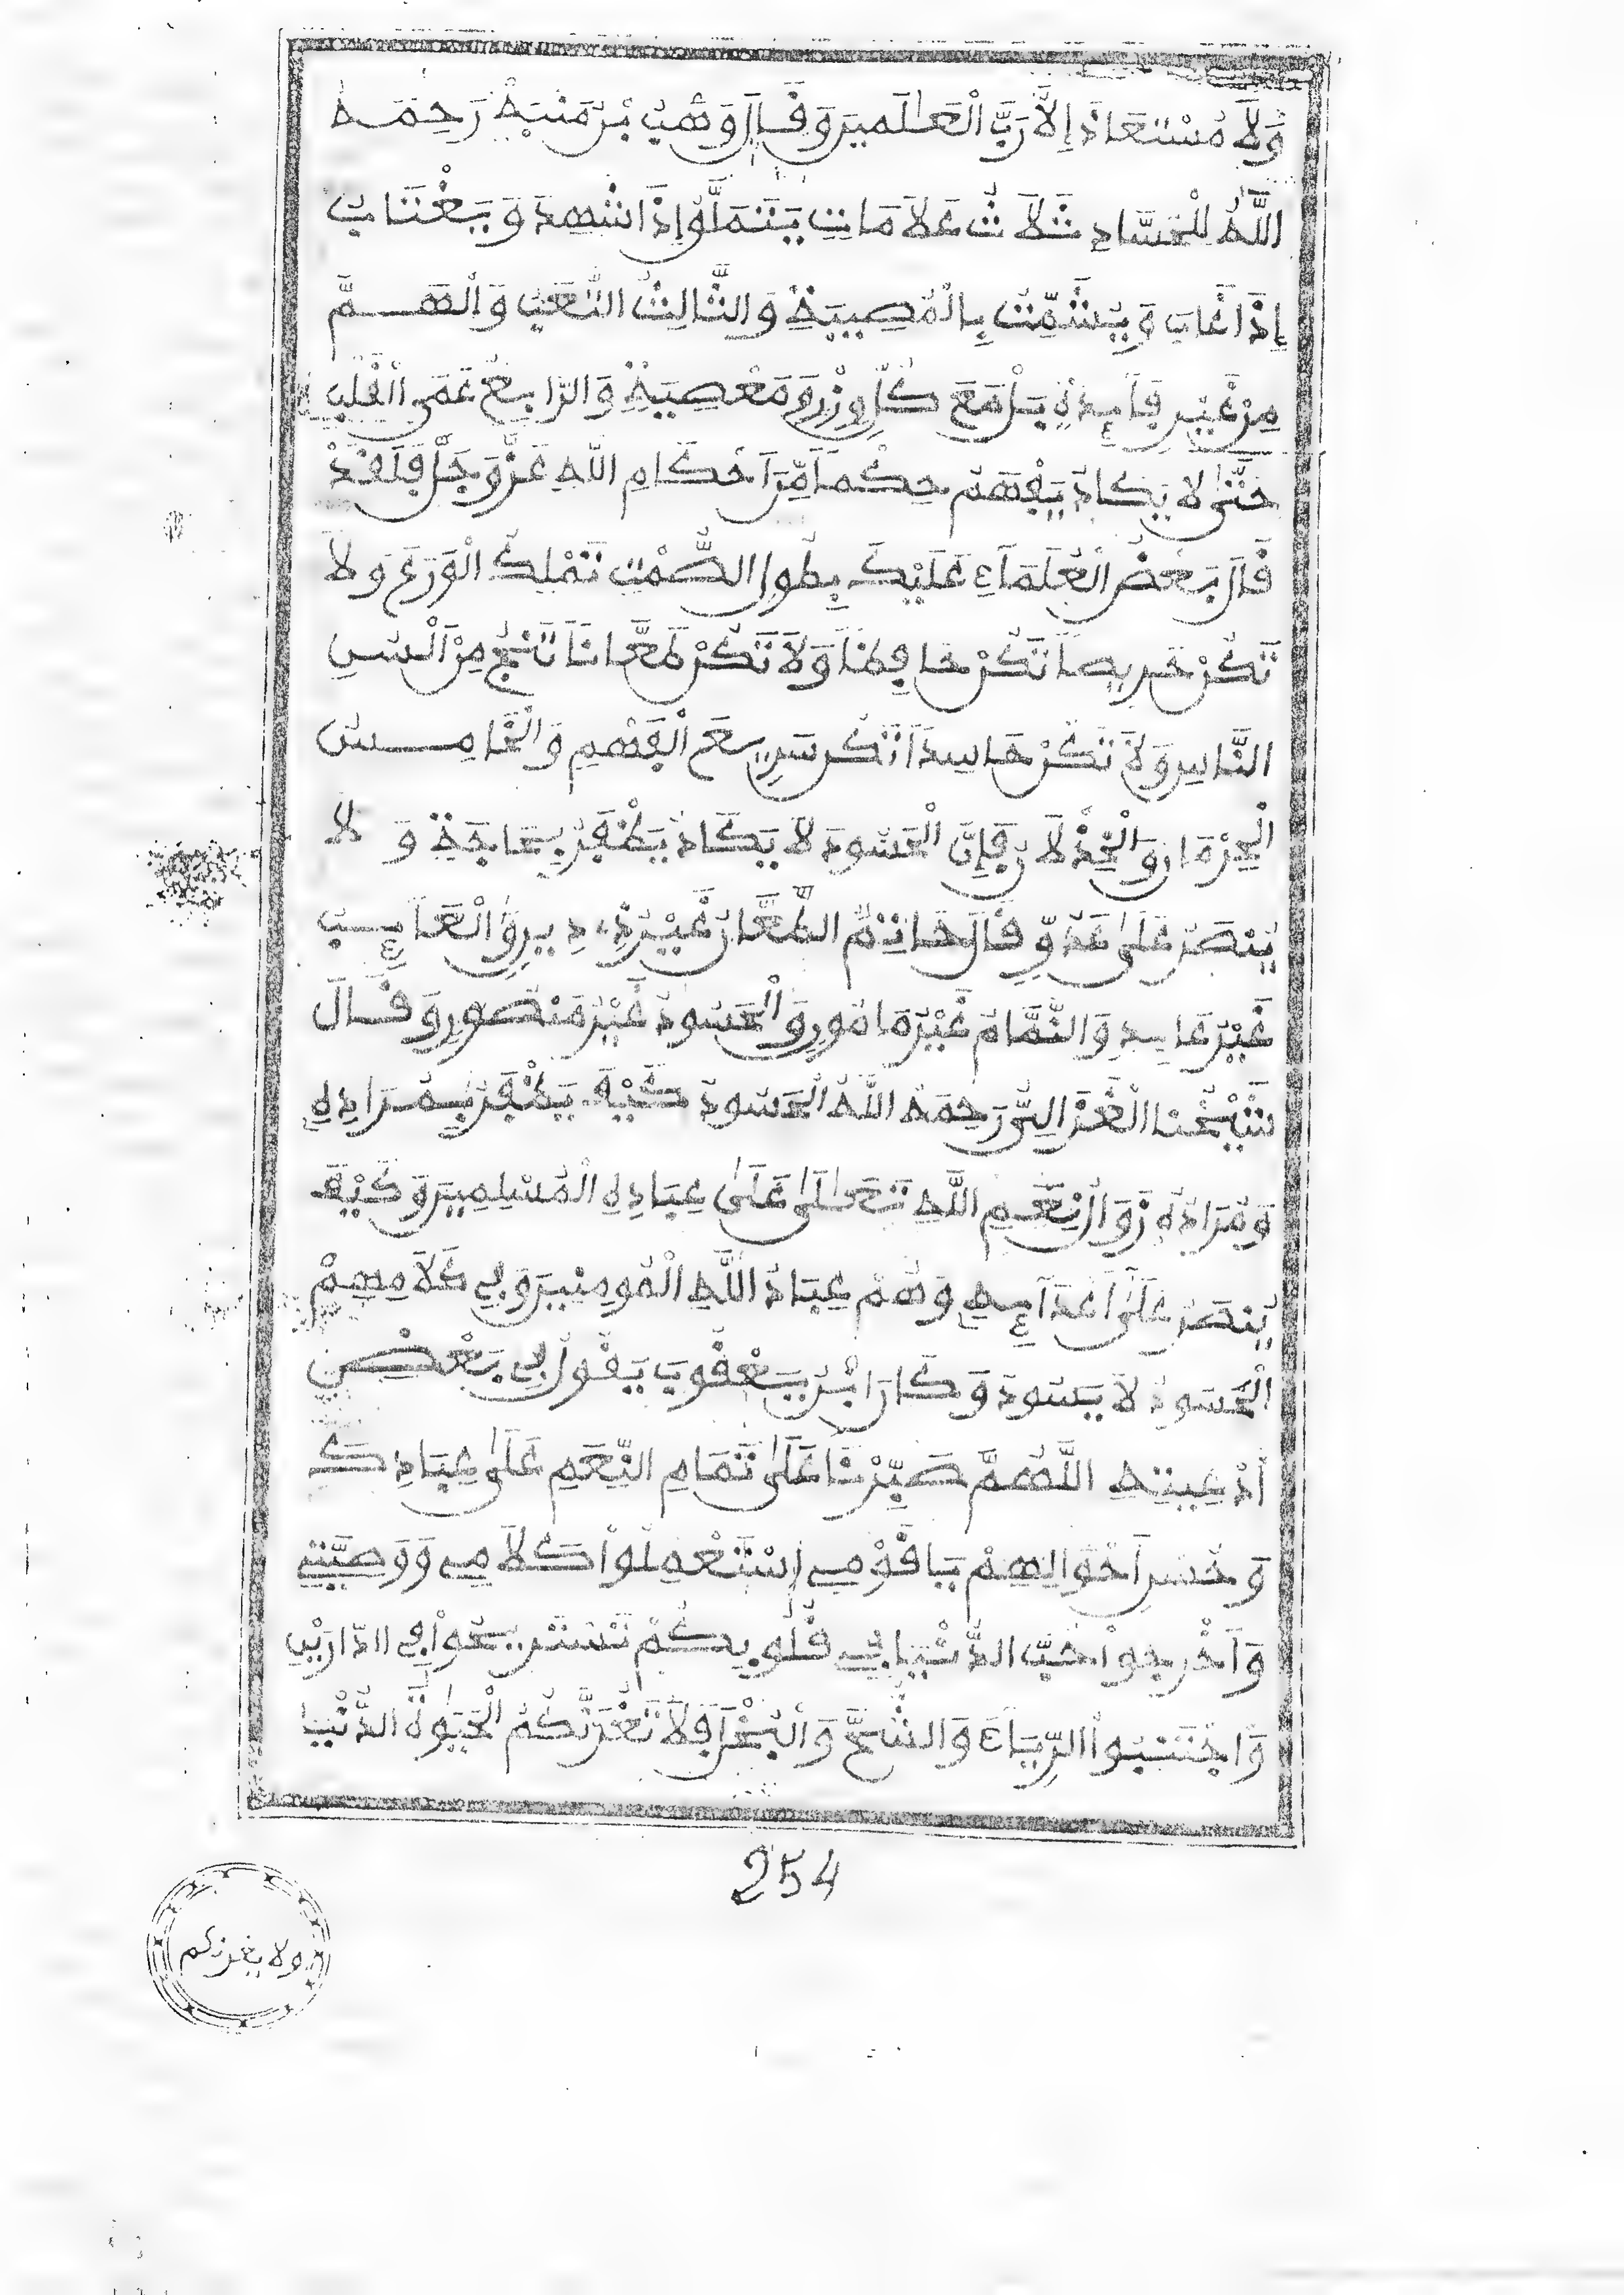 وَلَا مُسْتَعَاذَ إِلَّا رَبَّ الْعَالَمِينَ وَقَالَ وَهْبُ بْنُ مُنَبِّهْ رَحِمَهُ
اللَّهُ لِلْحَسَّادِ ثَلَاثُ عَلَامَاتٍ يَتَمَلَّقُ إِذَا شَهِدَ وَيَغْتَابُ
إِذَا غَابَ وَيُشَمِّتُ بِالْمُصِيبَةِ وَالثَّالِثُ التَّعَبُ وَالْهَمُّ
مِنْ غَيْرِ فَائِدَةٍ بَلْ مَعَ كُلِّ وِزْرٍ وَمَعْصِيَةٍ وَالرَّابِعُ عَمَى الْقَلْبِ
حَتَّى لَا يَكَادَ يَفْهَمُ حِكْمًا مِنْ أَحْكَامِ اللَّهِ عَزَّ وَجَلَّ فَلَقَدْ
قَالَ بَعْضُ الْعُلَمَاءِ عَلَيْكَ بِطُولِ الصَّمْتِ تَمْلِكُ الْوَرَعَ وَلَا
تَكُنْ حَرِيصًا تَكُنْ حَافِظًا وَلَا تَكُنْ طَعَّانًا تَنْجُ مِنْ أَلْسُنِ
النَّاسِ وَلَا تَكُنْ حَاسِدًا تَكُنْ سَرِيعَ الْفَهْمِ وَالْخَامِسُ
الْحِرْمَانُ وَالْخِذْلَانُ فَإِنَّ الْحَسُودَ لَا يَكَادُ يَظْفَرُ بِحَاجَةٍ وَلَا
يُنْصَرُ عَلَى عَدُوٍّ قَالَ حَاتِمُ الطَّعَّانُ غَيْرُ ذِي دِينٍ وَالْعَائِبُ
غَيْرُ عَابِدٍ وَالنَّمَّامُ غَيْرُ مَامُونٍ وَالْحَسُودُ غَيْرُ مَنْصُورٍ وَقَالَ
شَيْخُنَا الْغَزَالِيُّ رَحِمَهُ اللَّهُ الْحَسُودُ كَيْفَ يَظْفَرُ بِمُرَادِهِ
وَمُرَادُهُ زَوَالُ نِعَمِ اللَّهِ تَعَالَى عَلَى عِبَادِهِ الْمُسْلِمِينَ وَكَيْفَ
يُنْصَرُ عَلَى أَعْدَائِهِ وَهُمْ عِبَادُ اللَّهِ الْمُومِنِينَ وَفِي كَلَامِهِمْ
الْحَسُودُ لَا يَسُودُ وَكَانَ ابْنُ يَعْقُوبَ يَقُولُ فِي بَعْضِ
أَدْعِيَتِهِ اللَّهُمَّ صَبِّرْنَا عَلَى تَمَامِ النِّعَمِ عَلَى عِبَادِكَ
وَحُسْنِ أَحْوَالِهِمْ يَا قَوْمِي اسْتَعْمِلُوا كَلَامِي وَوَصِيَّتِي
وَأَخْرِجُوا حُبَّ الدُّنْيَا فِي قُلُوبِكُمْ تَسْتَرِيحُوا فِي الدَّارَيْنِ
وَاجْتَنِبُوا الرِّيَاءَ وَالشُّحَّ وَالْبُخْلَ فَلَا تَغُرَّنَّكُمُ الْحَيَوٰةُ الدُّنْيَا
254
ولا يغرنكم